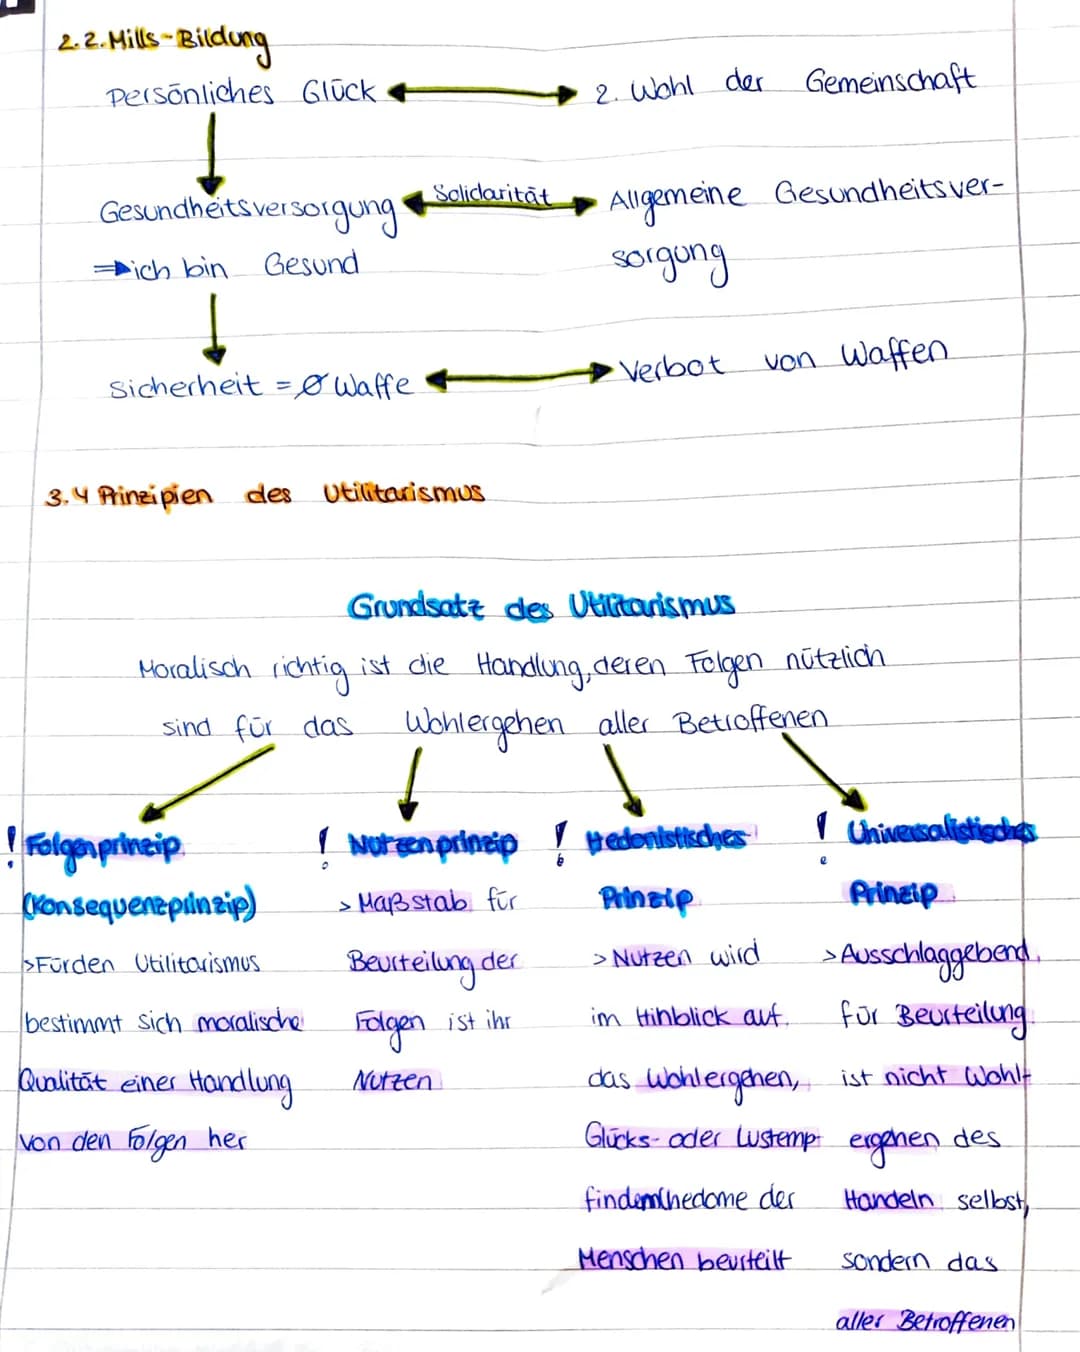 2.2. Mills-Bildung
Persönliches Glück
2. Wohl der Gemeinschaft
Gesundheitsversorgung
Solidarität
Allgemeine Gesundheitsver-
sorgung
⇒ ich bin Gesund
Sicherheit = Ø Waffe
Verbot von Waffen
3.4 Prinzipien des Utilitarismus
Grundsatz des Utilitarismus
Moralisch richtig ist die Handlung, deren Folgen nützlich
sind für das Wohlergehen aller Betroffenen
! Folgenprinzip
(Konsequenzprinzip)
> Für den Utilitarismus
bestimmt sich moralische
Qualität einer Handlung
von den Folgen her
! Nutzenprinzip
> Maßstab für
Beurteilung der
Folgen ist ihr
Nutzen
! Hedonistisches
Prinzip
> Nutzen wird
im Hinblick auf
das Wohlergehen,
Glücks- oder Lustemp-
finden(hedome der
Menschen beurteilt
! Universalistisches
Prinzip
> Ausschlaggebend
für Beurteilung
ist nicht Wohl-
ergehen des
Handeln selbst,
sondern das
aller Betroffenen